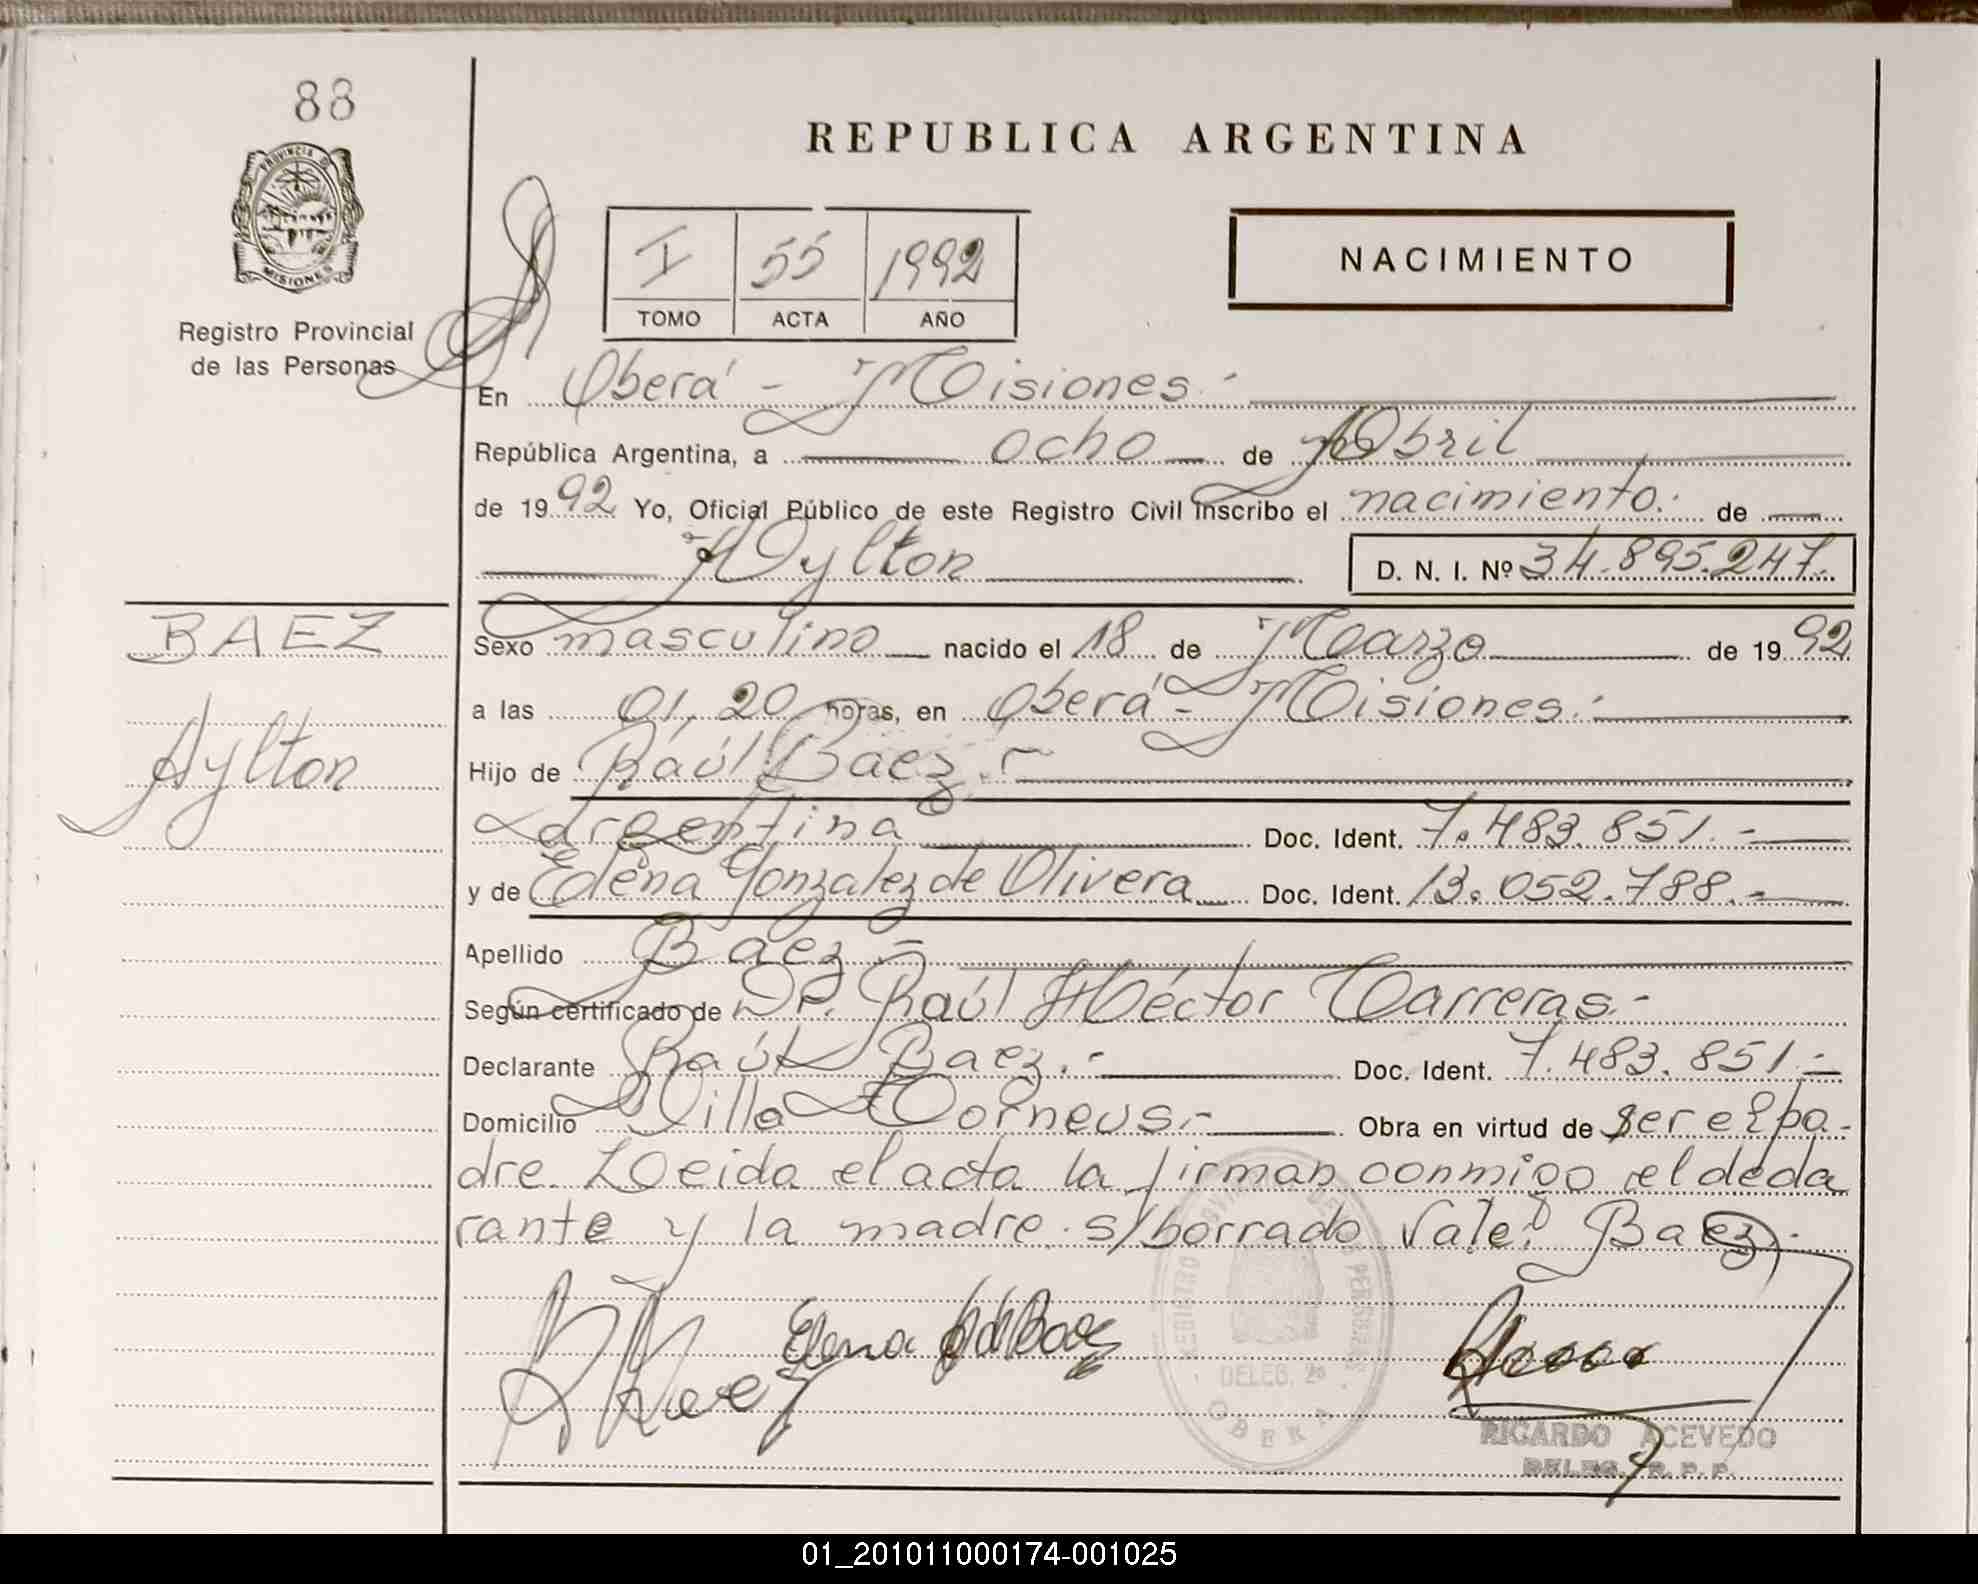 88
REPUBLICA ARGENTINA
PROVINCIA D
MISIONES
Registro Provincial
de las Personas
I 55 1992
TOMO ACTA AÑO
NACIMIENTO
En Oberá - Misiones.-
República Argentina, a ocho de Abril
de 1992 Yo, Oficial Público de este Registro Civil inscribo el nacimiento. de
Aylton D. N. I. Nº 34.895.247.
BAEZ
Aylton
Sexo masculino nacido el 18 de Marzo de 1992
a las 01,20 horas, en Oberá - Misiones.-
Hijo de Raúl Baez.-
Argentina Doc. Ident. 7.483.851.-
y de Elena Gonzalez de Olivera Doc. Ident. 13.052.788.-
Apellido Baez.-
Según certificado de Dr. Raúl Héctor Carreras.-
Declarante Raúl Baez.- Doc. Ident. 7.483.851.-
Domicilio Villa Torneus.- Obra en virtud de ser el pa-
dre. Leida el acta la firman conmigo el decla
rante y la madre. s/borrado Vale: Baez.-
Elena
REGISTRO PROVINCIAL DE LAS PERSONAS
DELEG. 2ª
OBERA
RICARDO ACEVEDO
DELEG. R. P. P.
01_201011000174-001025